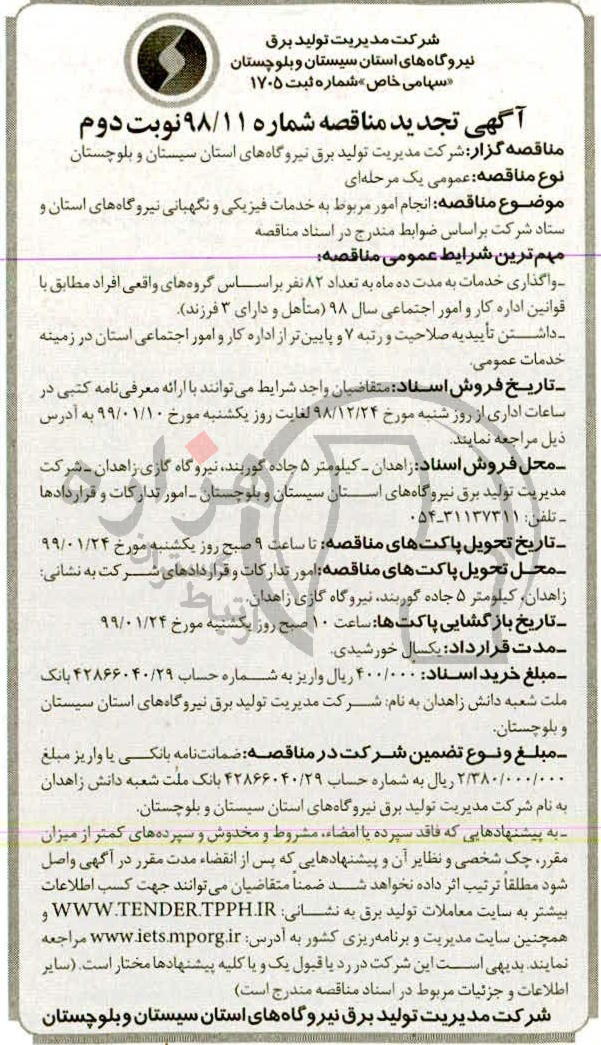 شرکت مدیریت تولید برق
نیروگاه‌های استان سیستان و بلوچستان
«سهامی خاص» شماره ثبت ۱۷۰۵
آگهی تجدید مناقصه شماره ۹۸/۱۱ نوبت دوم
مناقصه گزار: شرکت مدیریت تولید برق نیروگاه‌های استان سیستان و بلوچستان
نوع مناقصه: عمومی یک مرحله‌ای
موضوع مناقصه: انجام امور مربوط به خدمات فیزیکی و نگهبانی نیروگاه‌های استان و
ستاد شرکت براساس ضوابط مندرج در اسناد مناقصه
مهم‌ترین شرایط عمومی مناقصه:
ـ واگذاری خدمات به مدت ده ماه به تعداد ۸۲ نفر براساس گروه‌های واقعی افراد مطابق با
قوانین اداره کار و امور اجتماعی سال ۹۸ (متأهل و دارای ۳ فرزند).
ـ داشتن تأییدیه صلاحیت و رتبه ۷ و پایین‌تر از اداره کار و امور اجتماعی استان در زمینه
خدمات عمومی.
ـ تاریخ فروش اسناد: متقاضیان واجد شرایط می‌توانند با ارائه معرفی‌نامه کتبی در
ساعات اداری از روز شنبه مورخ ۹۸/۱۲/۲۴ لغایت روز یکشنبه مورخ ۹۹/۰۱/۱۰ به آدرس
ذیل مراجعه نمایند.
ـ محل فروش اسناد: زاهدان ـ کیلومتر ۵ جاده گوربند، نیروگاه گازی زاهدان ـ شرکت
مدیریت تولید برق نیروگاه‌های استان سیستان و بلوچستان ـ امور تدارکات و قراردادها
ـ تلفن: ۳۱۱۳۷۳۱۱-۰۵۴
ـ تاریخ تحویل پاکت‌های مناقصه: تا ساعت ۹ صبح روز یکشنبه مورخ ۹۹/۰۱/۲۴
ـ محل تحویل پاکت‌های مناقصه: امور تدارکات و قراردادهای شرکت به نشانی:
زاهدان، کیلومتر ۵ جاده گوربند، نیروگاه گازی زاهدان.
ـ تاریخ بازگشایی پاکت‌ها: ساعت ۱۰ صبح روز یکشنبه مورخ ۹۹/۰۱/۲۴
ـ مدت قرارداد: یکسال خورشیدی.
ـ مبلغ خرید اسناد: ۴۰۰/۰۰۰ ریال واریز به شماره حساب ۴۲۸۶۶۰۴۰/۲۹ بانک
ملت شعبه دانش زاهدان به نام: شرکت مدیریت تولید برق نیروگاه‌های استان سیستان
و بلوچستان.
ـ مبلغ و نوع تضمین شرکت در مناقصه: ضمانت‌نامه بانکی یا واریز مبلغ
۲/۳۸۰/۰۰۰/۰۰۰ ریال به شماره حساب ۴۲۸۶۶۰۴۰/۲۹ بانک ملت شعبه دانش زاهدان
به نام شرکت مدیریت تولید برق نیروگاه‌های استان سیستان و بلوچستان.
ـ به پیشنهادهایی که فاقد سپرده یا امضاء، مشروط و مخدوش و سپرده‌های کمتر از میزان
مقرر، چک شخصی و نظایر آن و پیشنهادهایی که پس از انقضاء مدت مقرر در آگهی واصل
شود مطلقاً ترتیب اثر داده نخواهد شد ضمناً متقاضیان می‌توانند جهت کسب اطلاعات
بیشتر به سایت معاملات تولید برق به نشانی: WWW.TENDER.TPPH.IR و
همچنین سایت مدیریت و برنامه‌ریزی کشور به آدرس: www.iets.mporg.ir مراجعه
نمایند. بدیهی است این شرکت در رد یا قبول یک و یا کلیه پیشنهادها مختار است. (سایر
اطلاعات و جزئیات مربوط در اسناد مناقصه مندرج است)
شرکت مدیریت تولید برق نیروگاه‌های استان سیستان و بلوچستان
هزاره